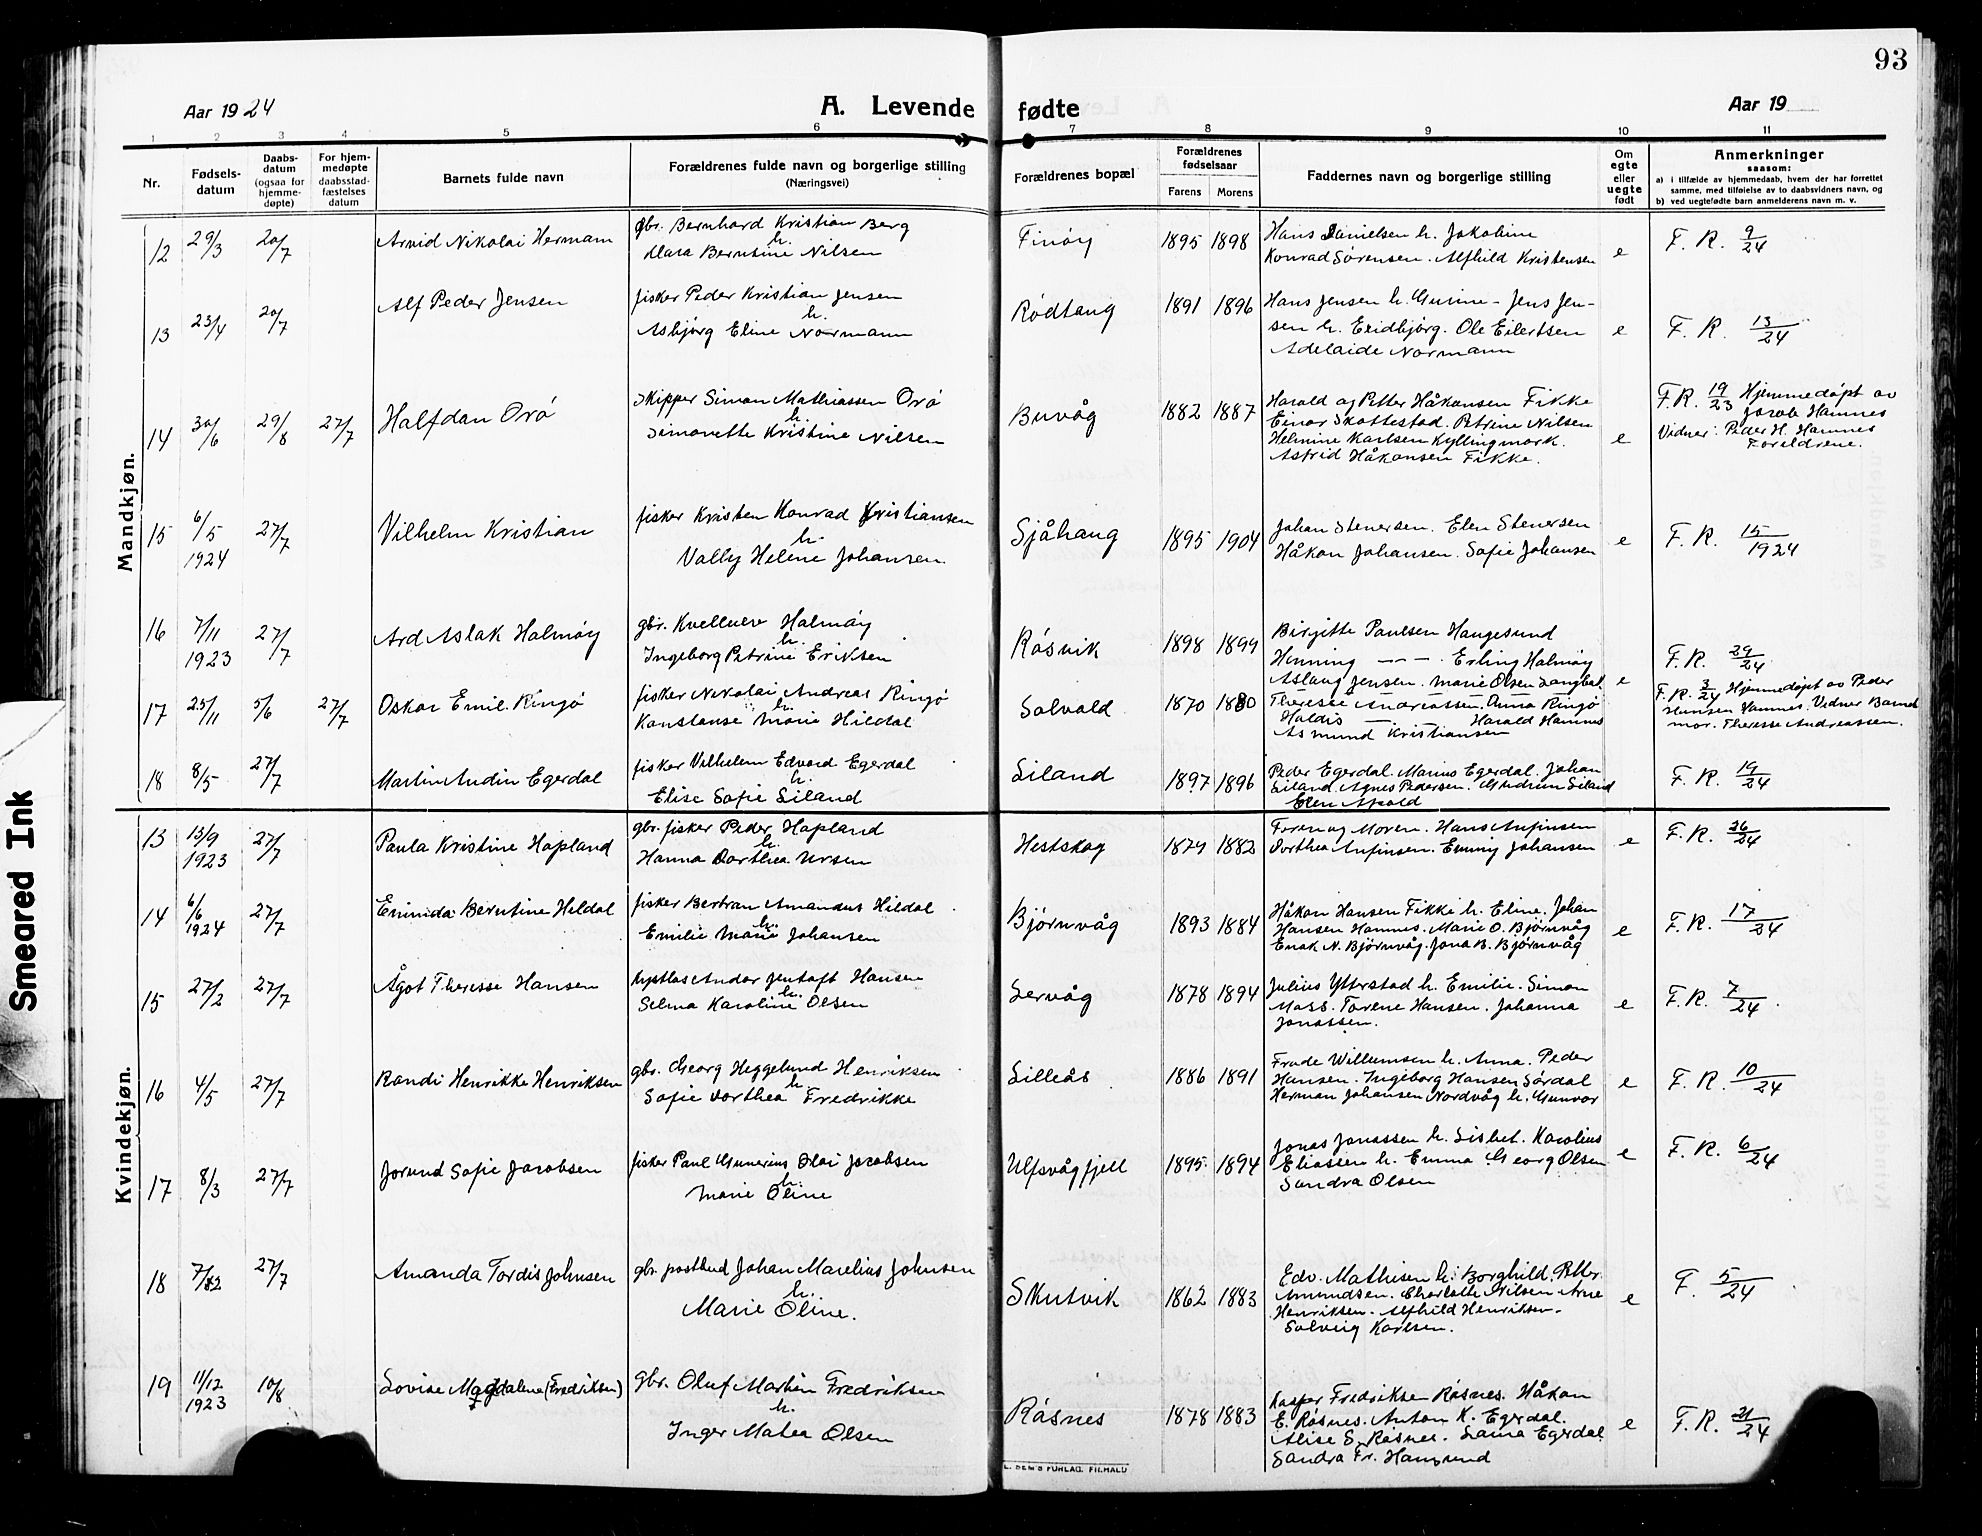 93
Aar 1924
A. Levende fødte
Aar 19
1 2 3 4 5 6 7 8 9 10 11
Nr.
Fødsels-
datum
Daabs-
datum
(ogsaa for
hjemme-
døpte)
For hjem-
medøpte
daabsstad-
fæstelses
datum
Barnets fulde navn
Forældrenes fulde navn og borgerlige stilling
(Næringsvei)
Forældrenes bopæl
Forældrenes
fødselsaar
Farens Morens
Faddernes navn og borgerlige stilling
Om
egte
eller
uegte
født
Anmerkninger
saasom:
a) i tilfælde av hjemmedaab, hvem der har forrettet
samme, med tilføielse av to daabsvidners navn, og
b) ved uegtefødte barn anmelderens navn m. v.
Mandkjøn.
12 29/3 20/7 Arvid Nikolai Hermann
gbr. Bernhard Kristian Berg
h.
Klara Berntine Nilsen
Finøy 1895 1898
Hans Danielsen h. Jakobine
Konrad Sørensen. Alfhild Kristensen
e F. R. 9/24
13 23/4 20/7 Alf Peder Jensen
fisker Peder Kristian Jensen
h.
Asbjørg Eline Normann
Rødtang 1891 1896
Hans Jensen h. Gurine - Jens Jen-
sen h. Eridbjørg. Ole Eilertsen
Adelaide Normann
e F. R. 13/24
14 30/6 29/8 27/7 Halfdan Orø
skipper Simon Mathiassen Orø
h.
Simonette Kristine Nilsen
Buvåg 1882 1887
Harald og Petter Håkonsen Fikke
Einar Skottestad. Petrine Nilsen
Helmine Karlsen Kyllingmark.
Astrid Håkonsen Fikke.
e F. R. 19/23 Hjemmedøpt av
Jacob Hamnes
Vidner: Peder H. Hamnes
Foreldrene.
15 6/5 1924 27/7 Vilhelm Kristian
fisker Kristen Konrad Kristiansen
h.
Vally Helene Johansen.
Sjåhaug 1895 1904
Johan Stenersen. Elen Stenersen
Håkon Johansen. Sofie Johansen
e F. R. 15/1924
16 7/11 1923 27/7 Ard Aslak Holmøy
gbr. Kvelluev Holmøy
h.
Ingeborg Petrine Eriksen
Røsvik 1898 1899
Birgitte Paulsen Haugesund
Henning — — - Erling Holmøy
Aslaug Jensen. Marie Olsen
e F. R. 29/24
17 25/11 5/6 27/7 Oskar Emil Ringø
fisker Nikolai Andreas Ringø
h.
Konstanse Marie Hildal
Solvold 1870 1880
Theresie Andreassen. Anna Ringø
Haldis — — Harald Hamnes
Asmund Kristiansen
F. R. 3/24 Hjemmedøpt av Peder
Hansen Hamnes. Vidner Barnets
mor. Therese Andreassen.
18 8/5 27/7 Martin Audin Egerdal
fisker Vilhelm Edvard Egerdal
h.
Elise Sofie Siland
Siland 1897 1896
Peder Egerdal. Marius Egerdal. Johan
Siland. Agnes Pedersen. Gudrun Siland
F. R. 19/24
Kvindekjøn.
13 13/9 1923 27/7 Paula Kristine Hopland
gbr. fisker Peder Hopland
h.
Hanna Dorthea Ursen
Hestskog 1874 1882
Faren og Moren. Hans Anfinsen
Dorthea Anfinsen. Emmy Johansen
e F. R. 26/24
14 6/6 1924 27/7 Erminda Berntine Hildal
fisker Bertran Amandus Hildal
h.
Emilie Marie Johansen
Bjørnvåg 1893 1884
Håkon Hansen Fikke h. Eline. Johan
Hansen Hamnes. Marie O. Bjørnvåg
Enok N. Bjørnvåg. Jona B. Bjørnvåg
e F. R. 17/24
15 27/2 27/7 Ågot Therese Hansen
Andor Jentoft Hansen
h.
Selma Karoline Olsen
Servåg 1878 1894
Julius Ytterstad h. Emilie. Simon
Moss. Torene Hansen. Johanna
Jonassen.
e F. R. 7/24
16 4/5 27/7 Randi Henrikke Henriksen
gbr. Georg Heggelund Henriksen
h.
Sofie Dorthea Fredrikke
Lilleås 1886 1891
Frode Willumsen h. Anna. Peder
Hansen. Ingeborg Hansen Sørdal
Herman Johansen Nordvåg h. Gunvor
e F. R. 10/24
17 8/3 27/7 Jorund Sofie Jacobsen
fisker Paul Gunerius Olai Jacobsen
h.
Marie Oline
Ulfsvågfjell 1895 1894
Jonas Jonassen h. Lisbet. Karolius
Eliassen h. Emma. Georg Olsen
Sandra Olsen
e F. R. 6/24
18 7/12 27/7 Amanda Tordis Johnsen
gbr. postbud Johan Marelius Johnsen
h.
Marie Oline.
Skutvik 1862 1883
Edv. Mathisen h. Borghild. Petter
Amundsen. Charlotte Nilsen. Arne
Henriksen. Alfhild Henriksen.
Solveig Karlsen.
e F. 5/24
19 11/12 1923 10/8 Lovise Magdalene (Fredriksen)
gbr. Oluf Martin Fredriksen
h.
Inger Matea Olsen
Røsnes 1878 1883
Kasper Fredriksen Røsnes. Håkon
E. Røsnes. Anton K. Egerdal.
Alise S. Røsnes. Laura Egerdal
Sandra Fr. Hamsund
e F. R. 21/24
E. SEM'S FORLAG. FR.HALD
Smeared Ink